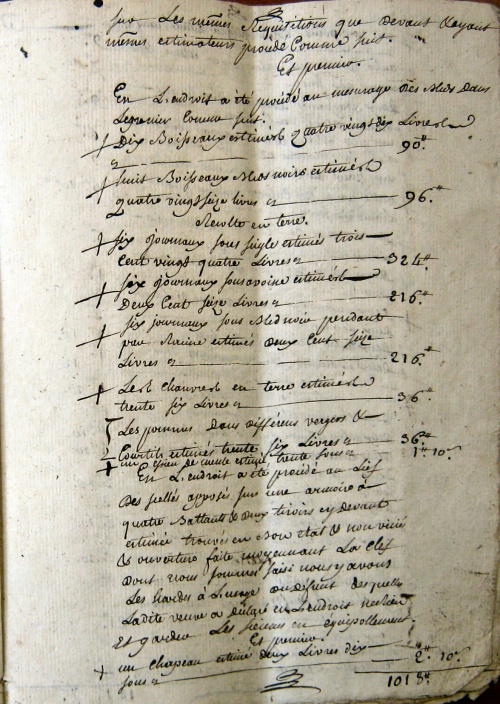 sur Les mêmes Requisitions que devant Et ayant
mêmes estimateurs procédé Comme suit.
Et premier.
En L'endroit a été procédé au mesurage des Bleds dans
Le grenier Comme suit.
+ Dix Boisseaux estimés quatre vingt dix Livres
90.#
+ huit Boisseaux Bleds noirs estimés
quatre vingt seize livres cy 96.#
Recolte en terre.
+ six journaux sous seigle estimés trois
Cent vingt quatre Livres cy 324.#
+ six journaux sous avoine estimés
Deux Cent seize Livres cy 216.#
+ six journaux sous Bled noir pendant
par Racine estimés deux Cent seize
Livres cy 216.#
+ Les Chanvres en terre estimés
trente six Livres cy 36.#
Les pommes dans différens vergers &
Courtils estimés trente six Livres cy 36.#
+ un essieu de meule estimé trente sous cy 1.# 10.s
En L'endroit a été procédé au Lief
Des scellés apposés sur une armoire à
quatre Battants & deux tiroirs cy devant
estimée trouvés en Bon état & non vicié
& ouverture faite moyennant La Clef
dont nous sommes saisi nous y avons
Les hardes à L'usage du défunt desquelles
Ladite veuve a déclaré en L'endroit
Et garder Les siennes en équipollement.
Et premier.
+ un Chapeau estimé deux Livres dix
sous cy 2.# 10.s
1018.#